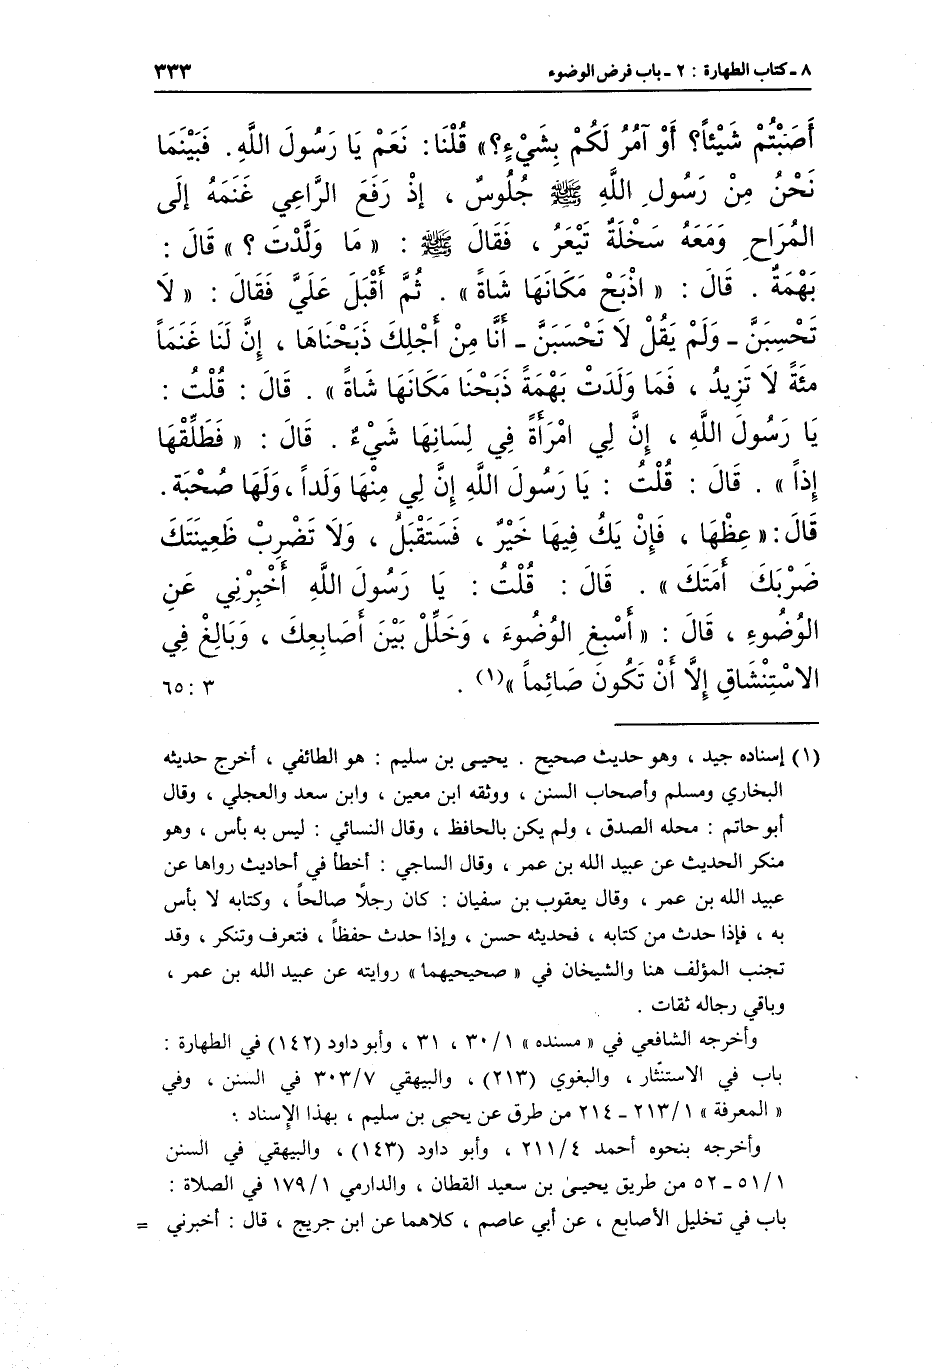 ٨ - كتاب الطهارة : ٢ - باب فرض الوضوء ٣٣٣
أَصَبْتُمْ شَيْئاً؟ أَوْ آمُرُ لَكُمْ بِشَيْءٍ؟» قُلْنَا: نَعَمْ يَا رَسُولَ اللَّهِ. فَبَيْنَمَا
نَحْنُ مِنْ رَسُولِ اللَّهِ ﷺ جُلُوسٌ ، إِذْ رَفَعَ الرَّاعِي غَنَمَهُ إِلَى
المُرَاحِ وَمَعَهُ سَخْلَةٌ تَيْعَرُ ، فَقَالَ ﷺ : « مَا وَلَّدْتَ ؟ » قَالَ :
بَهْمَةٌ . قَالَ : « اذْبَحْ مَكَانَهَا شَاةً » . ثُمَّ أَقْبَلَ عَلَيَّ فَقَالَ : « لَا
تَحْسِبَنَّ - وَلَمْ يَقُلْ لَا تَحْسَبَنَّ - أَنَّا مِنْ أَجْلِكَ ذَبَحْنَاهَا ، إِنَّ لَنَا غَنَماً
مئَةً لَا تَزِيدُ ، فَمَا وَلَدَتْ بَهْمَةً ذَبَحْنَا مَكَانَهَا شَاةً » . قَالَ : قُلْتُ :
يَا رَسُولَ اللَّهِ ، إِنَّ لِي امْرَأَةً فِي لِسَانِهَا شَيْءٌ . قَالَ : « فَطَلِّقْهَا
إِذاً » . قَالَ : قُلْتُ : يَا رَسُولَ اللَّهِ إِنَّ لِي مِنْهَا وَلَداً ، وَلَهَا صُحْبَة .
قَالَ : « عِظْهَا ، فَإِنْ يَكُ فِيهَا خَيْرٌ ، فَسَتَقْبَلُ ، وَلَا تَضْرِبْ ظَعِينَتَكَ
ضَرْبَكَ أَمَتَكَ » . قَالَ : قُلْتُ : يَا رَسُولَ اللَّهِ أَخْبِرْنِي عَنِ
الوُضُوءِ ، قَالَ : « أَسْبِغِ الوُضُوءَ ، وَخَلِّلْ بَيْنَ أَصَابِعِكَ ، وَبَالِغْ فِي
الاسْتِنْشَاقِ إِلَّا أَنْ تَكُونَ صَائِماً »(١) . ٣ : ٦٥
(١) إسناده جيد ، وهو حديث صحيح . يحيى بن سليم : هو الطائفي ، أخرج حديثه
البخاري ومسلم وأصحاب السنن ، ووثقه ابن معين ، وابن سعد والعجلي ، وقال
أبو حاتم : محله الصدق ، ولم يكن بالحافظ ، وقال النسائي : ليس به بأس ، وهو
منكر الحديث عن عبيد الله بن عمر ، وقال الساجي : أخطأ في أحاديث رواها عن
عبيد الله بن عمر ، وقال يعقوب بن سفيان : كان رجلاً صالحاً ، وكتابه لا بأس
به ، فإذا حدث من كتابه ، فحديثه حسن ، وإذا حدث حفظاً ، فتعرف وتنكر ، وقد
تجنب المؤلف هنا والشيخان في « صحيحيهما » روايته عن عبيد الله بن عمر ،
وباقي رجاله ثقات .
وأخرجه الشافعي في « مسنده » ٣٠/١ ، ٣١ ، وأبو داود (١٤٢) في الطهارة :
باب في الاستنثار ، والبغوي (٢١٣) ، والبيهقي ٣٠٣/٧ في السنن ، وفي
« المعرفة » ٢١٣/١ - ٢١٤ من طرق عن يحيى بن سليم ، بهذا الإسناد .
وأخرجه بنحوه أحمد ٢١١/٤ ، وأبو داود (١٤٣) ، والبيهقي في السنن
٥١/١ - ٥٢ من طريق يحيى بن سعيد القطان ، والدارمي ١٧٩/١ في الصلاة :
باب في تخليل الأصابع ، عن أبي عاصم ، كلاهما عن ابن جريج ، قال : أخبرني =